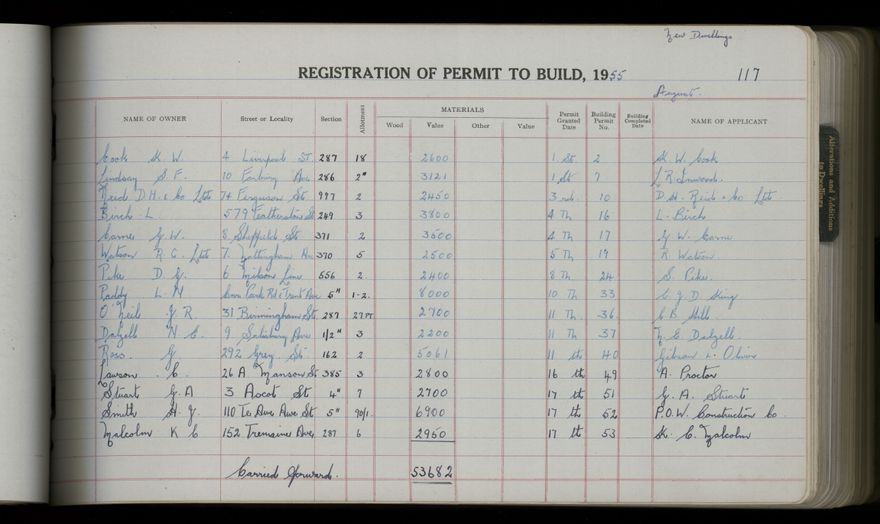 New Dwellings
REGISTRATION OF PERMIT TO BUILD, 1955 117
August.
NAME OF OWNER Street or Locality Section Allotment MATERIALS Permit Granted Date Building Permit No. Building Completed Date NAME OF APPLICANT
Wood Value Other Value
Cook K. W. 4 Liverpool St. 287 18 2600 1 St. 2 K. W. Cook
Lindsay S. F. 10 Ave 286 2" 3121 1 St 7 L R. Inwood.
Reid D. H. & Co Ltd 74 Ferguson St. 997 2 2450 3 rd. 10 D. H. Reid & Co Ltd
Birch L. 579 Featherston St 249 3 3800 4 Th 16 L. Birch
Carne G. W. 8 Sheffield St 371 2 3500 4 Th 17 G. W. Carne
Watson R. G. Ltd 7. Nottingham Ave 370 5 2500 5 Th 19 R Watson.
Pike D. G. 6 Milson Line 556 2 2400 8 Th 24 S. Pike.
Paddy L. N Corn Park Rd & Trent Ave 5" 1-2. 8000 10 Th 33 C G D King
O'Neil G R. 31 Birmingham St. 287 27 PT 2700 11 Th. 36 C B Hill
Dalzell N E. 9 Salisbury Ave 1/2" 3 2200 11 Th 37 N. E. Dalzell.
Ross. G 292 Grey St. 162 2 5061 11 th 40 Gibson L. Oliver
Lawson . C. 26 A Manson St 385 3 2800 16 th 49 A. Proctor
Stuart G. A 3 Ascot St 4" 7 2700 17 th 51 G. A. Stuart
Smith H. J. 110 Te Awe Awe St 5" 90/1. 6900 17 th 52 P.O.W. Construction Co.
Malcolm K C 152 Tremaine Ave, 287 6 2950 17 th 53 K. C. Malcolm
Carried forward. 53682
Alterations and Additions
to Dwellings